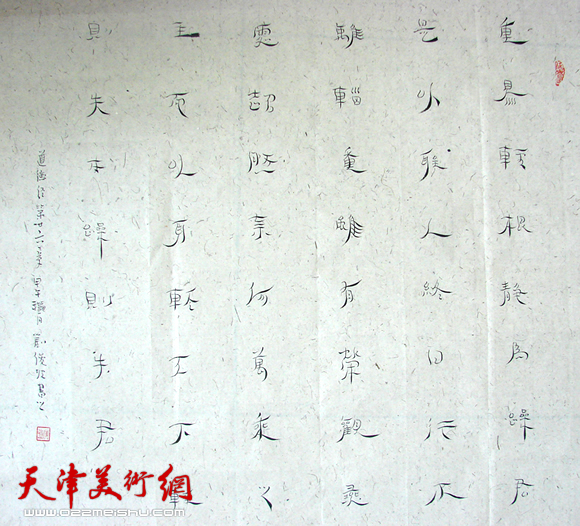 重爲輕根靜爲躁君
是以聖人終日行不
離輜重雖有榮觀燕
處超然奈何萬乘之
主而以身輕天下輕
則失本躁則失君
道德經第廿六章 甲午臘月 俊 書之
天津美術網
www.022meishu.com